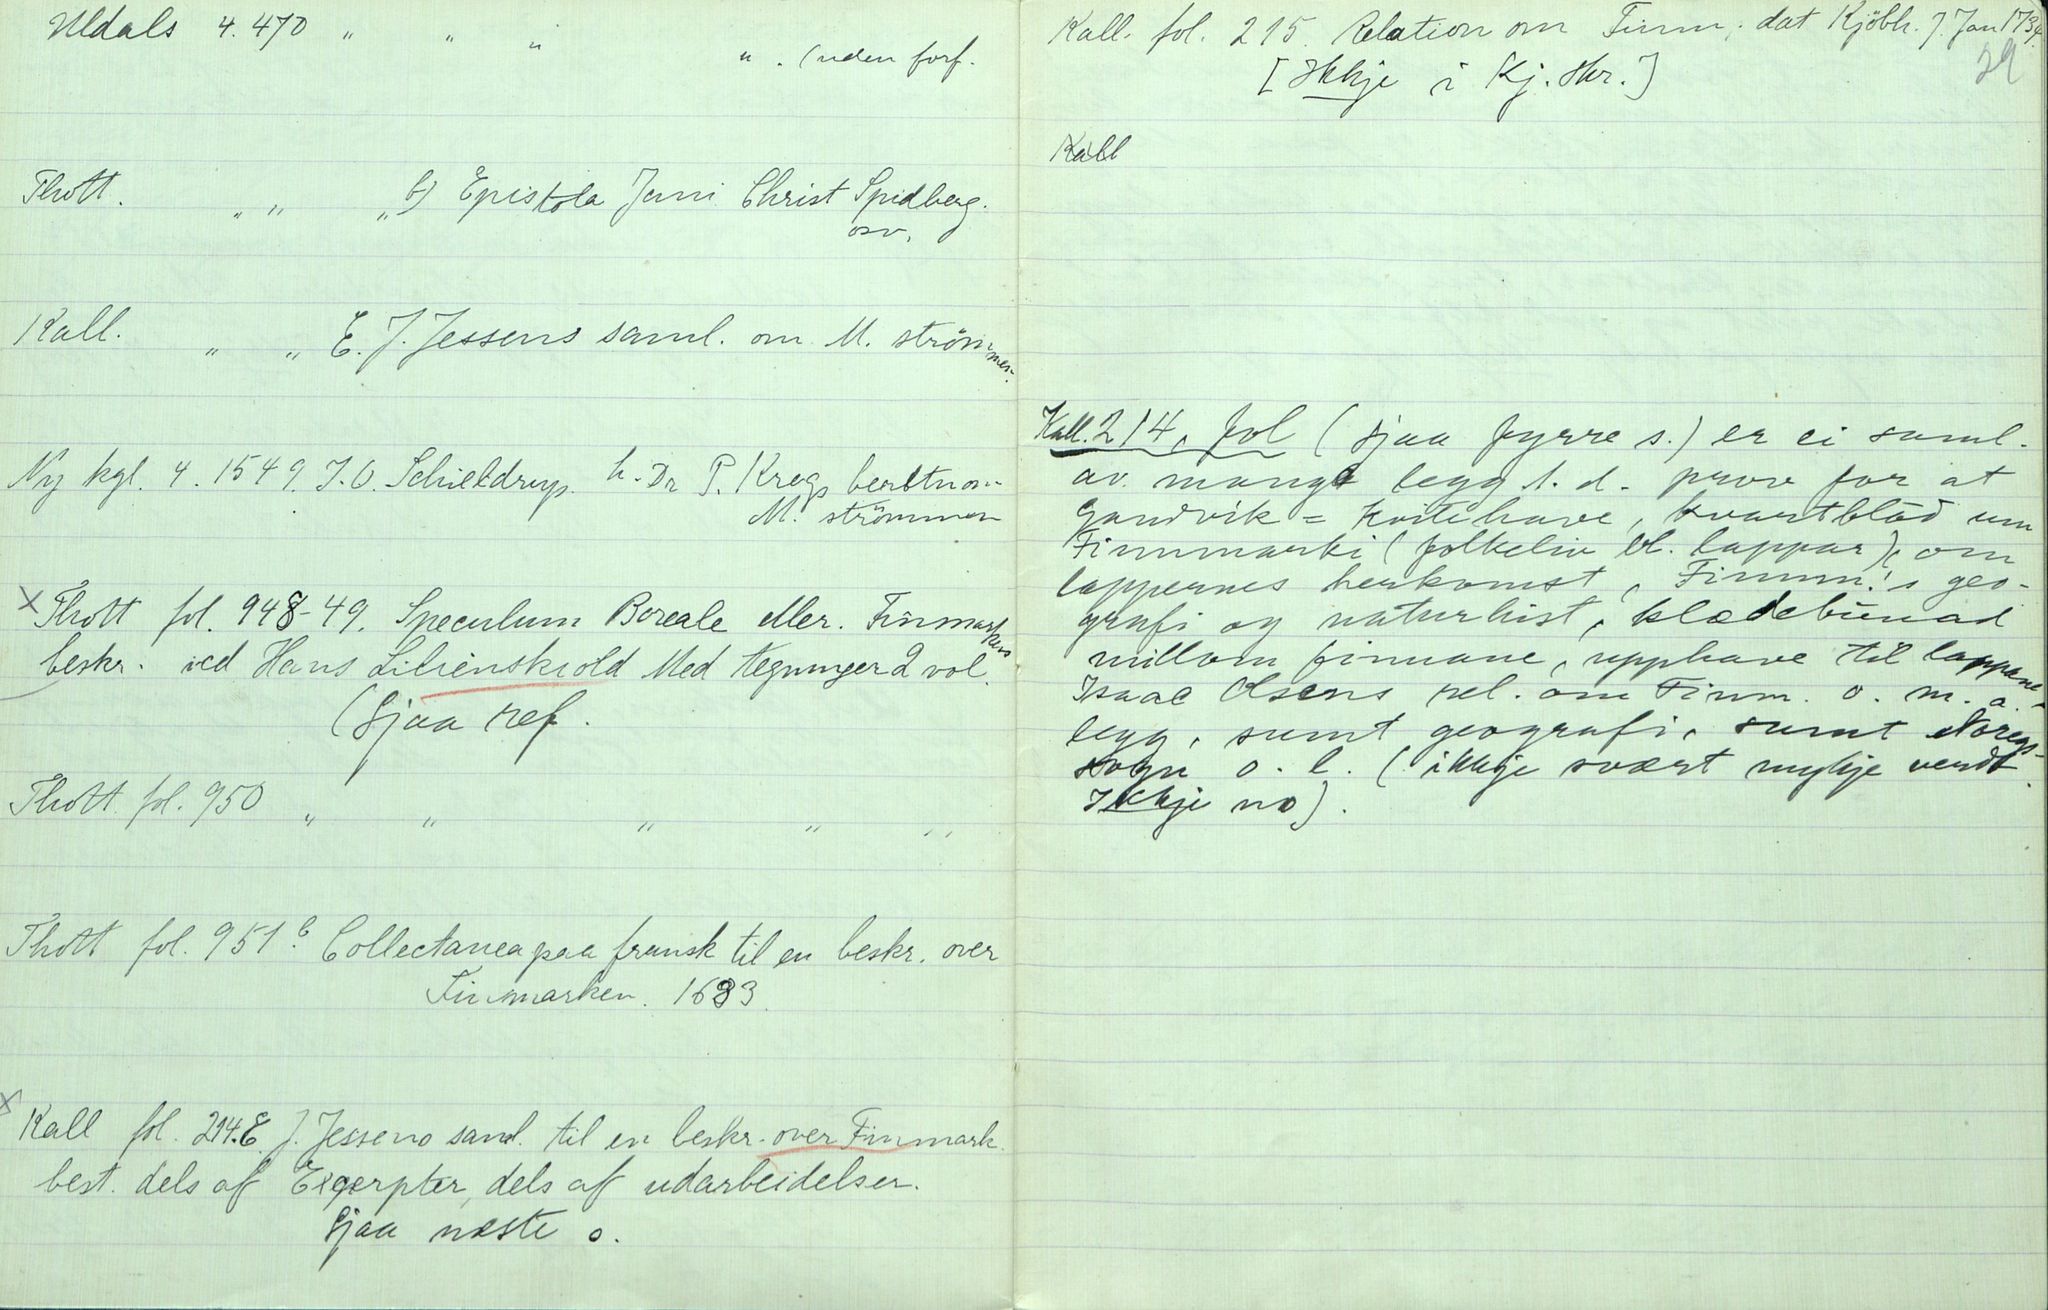 Uldals 4. 470 " " "
" . (uden forf.
Thott. " " " b) Epistola Jani Christ Spidberg.
osv.
Kall. " " E. J. Jessens saml. om M. strömmen.
Ny kgl. 4. 1549. J. O. Schieldrup. h. Dr P. Kregs beretn om
M. strömmen
X Thott fol. 948-49. Speculum Boreale eller. Finmarkens
beskr. ved Hans Lilienskiold Med tegninger 2 vol.
(Sjaa ref.
Thott fol. 950 " " " " "
Thott fol. 951 b Collectanea paa fransk til en beskr. over
Finmarken. 1683.
X
Kall fol. 214. E. J. Jessens saml. til en beskr. over Finmark.
best. dels af Excerpter, dels af udarbeidelser.
Sjaa næste s.
Kall. fol. 215. Relation om Finm. dat Kjöbh. 7. Jan 1734.
29
[Ikkje i Kj. skr.]
Kall
Kall. 214, fol (sjaa fyrre s.) er ei saml.
av mange legg t. d. prov for at
Gandvik = Kvitehave, kvartblad um
Finnmarki (folkeliv bl. lappar), om
lappernes herkomst, Finnm.'s geo-
grafi og naturhist, klædebunad
millom finnane, upphave til lappane
Isaac Olsens rel. om Finm. o. m. a.
legg, sumt geografi, sumt Noregs-
sogn o. l. (ikkje svært mykje verdt.
Ikkje no).